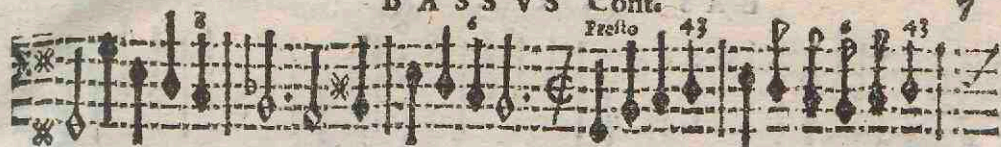 BASSVS Cont. 9
8 6 Presto 43 6 43